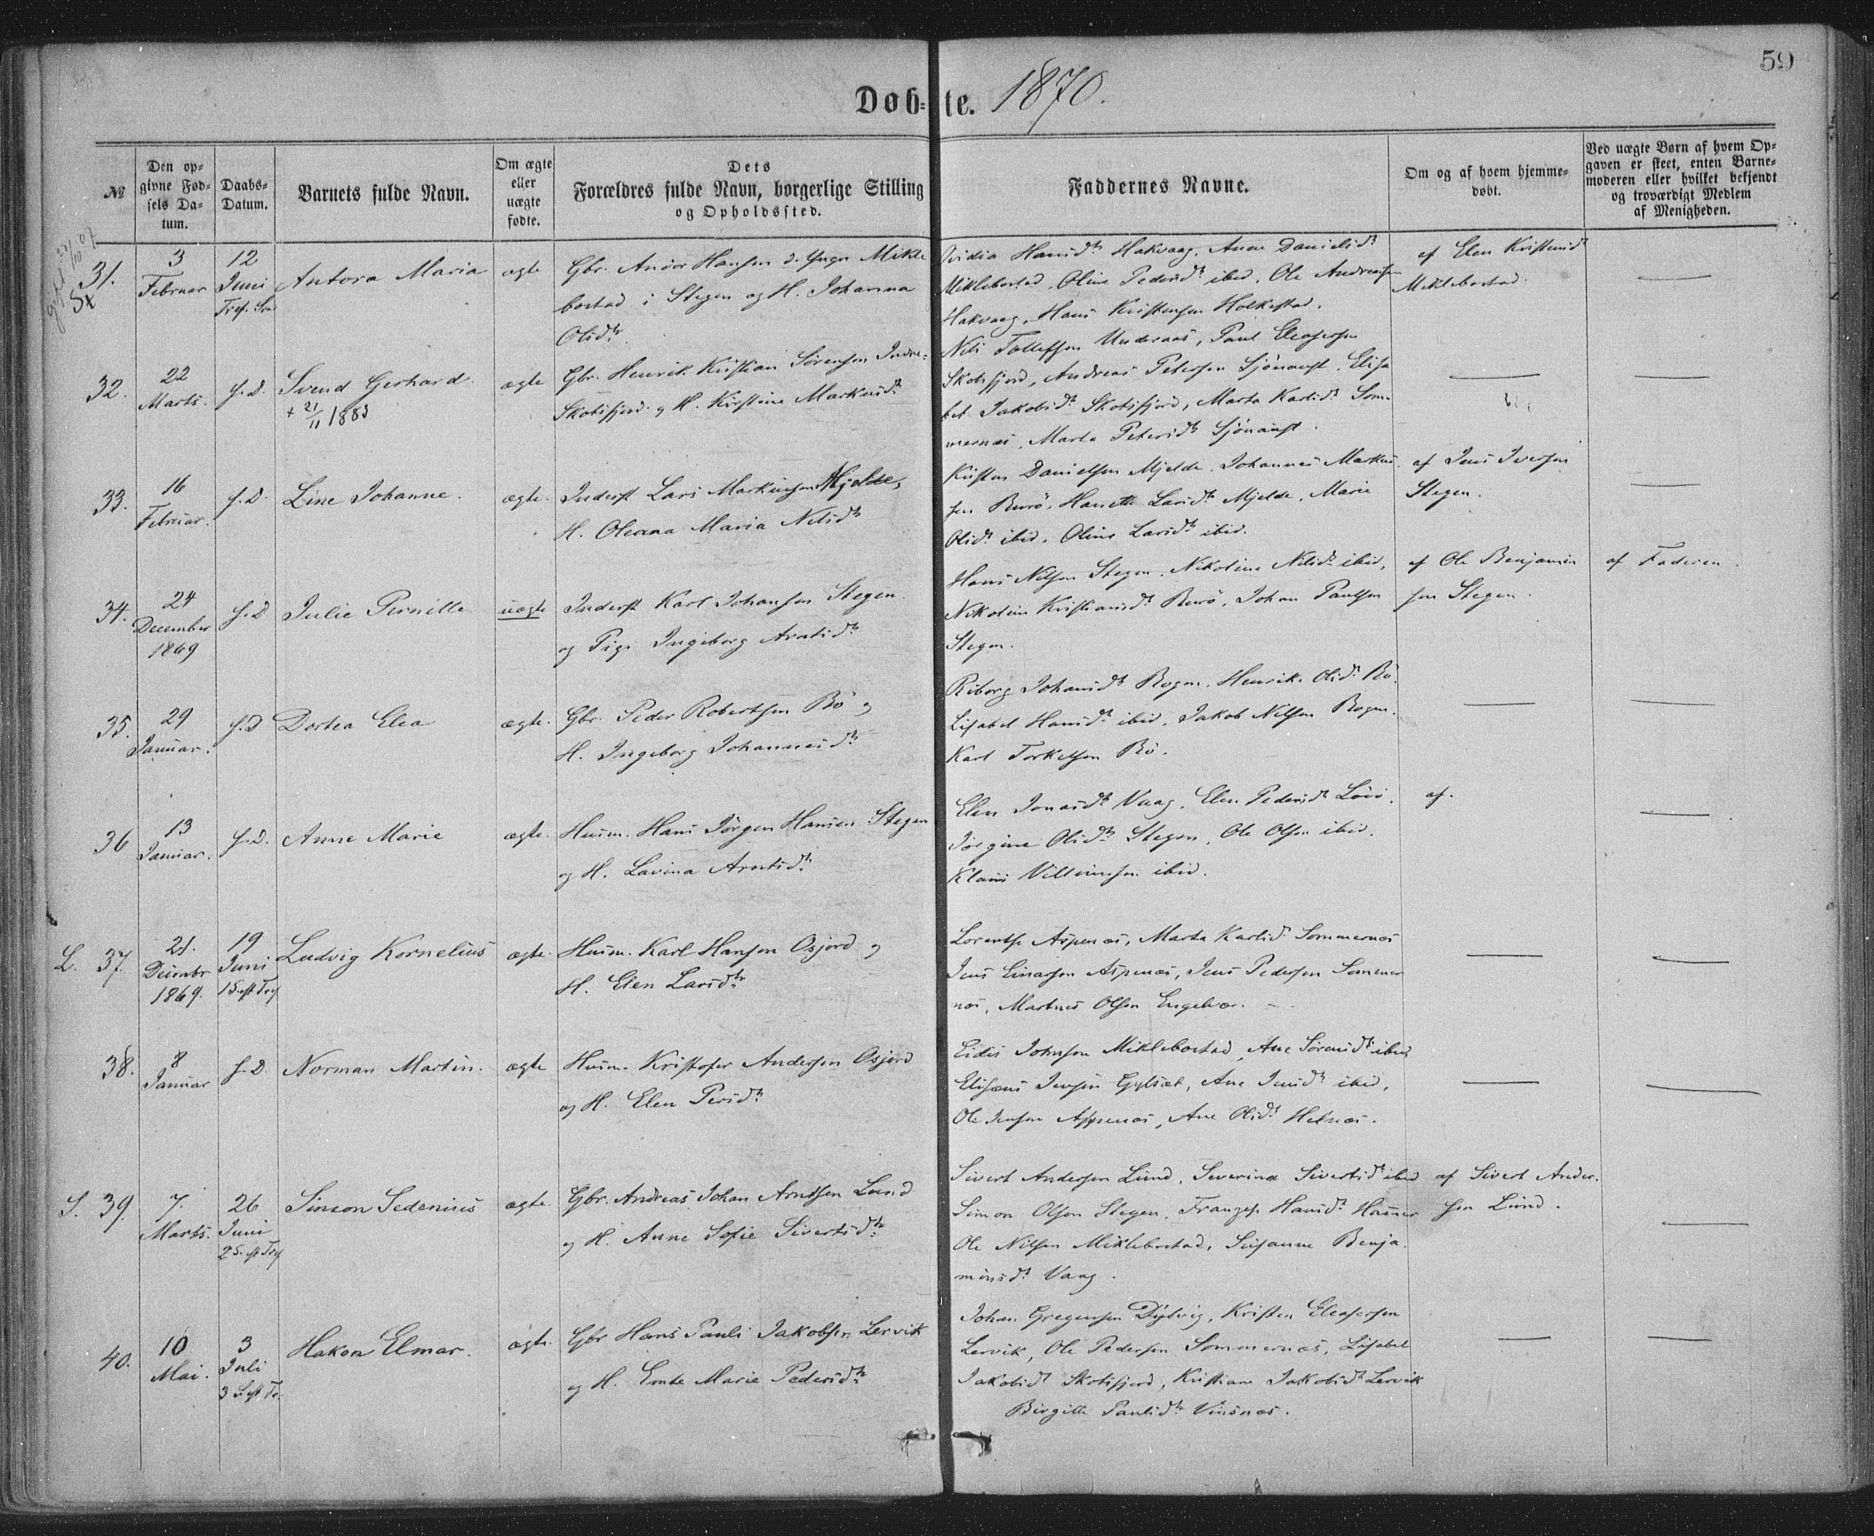 59
Døbte. 1870.
№
Den opgivne Fødsels Datum.
Daabs-Datum.
Barnets fulde Navn.
Om ægte eller uægte fødte.
Dets Forældres fulde Navn, borgerlige Stilling og Opholdssted.
Faddernes Navne.
Om og af hvem hjemmedøbt.
Ved uægte Børn af hvem Opgaven er skeet, enten Barnemoderen eller hvilket bekjendt og troværdigt Medlem af Menigheden.
31.
3 Februar
12 Juni
Antora Maria
ægte
Gbr. Andor Hansen d. Yngr Mikle
bostad i Stegen og H. Johanna
Olsdtr.
Hansdtr Hakvaag, Anne Danielsdtr
Miklebostad, Oline Pedersdtr ibid, Ole Andreassen
Hakvaag, Hans Kristensen Holkestad.
af Elen Kristensdtr
Miklebostad.
32.
22 Marts.
s. D.
Svend Gerhard.
+ 21/11 1883
ægte
Gbr. Henrik Kristian Sørensen Indre-
Skotsfjord. og H. Kirstine Markusdtr
Nils Tollefsen Underaas, Paul Eleasersen
Skotsfjord, Andreas Petersen Sjønangst, Elisa
bet Jakobsdtr Skotsfjord, Marta Karlsdtr Som-
mernæs, Marta Petersdtr Sjønangst.
33.
16 Februar.
s. D.
Line Johanne.
ægte.
Inderst Lars Markussen Mjelde,
H. Oleana Maria Nilsdtr
Kristen Danielsen Mjelde, Johannes Markus
sen Burø, Hansette Larsdtr Mjelde, Marie
Olsdtr ibid, Oline Larsdtr ibid.
af Jens Iversen
Stegen.
34.
24 December 1869
s. D
Julie Pernille
uægte
Inderst Karl Johansen Stegen.
og Pige Ingeborg Arntsdtr
Hans Nilsen Stegen, Nikoline Nilsdtr ibid,
Nikoline Kristiansdtr Burø, Johan Paulsen
Stegen.
af Ole Benjamin
sen Stegen.
af Faderen.
35.
29 Januar.
s. D
Dortea Elea
ægte.
Gbr. Peder Robertsen Bö og
H. Ingeborg Johannesdtr
Riborg Johansdtr Bogen, Henrik. Olsdtr Bö.
Lisabet Hansdtr ibid, Jakob Nilsen Bogen.
Karl Torkelsen Bö.
36
13 Januar.
s. D.
Anne Marie
ægte.
Husm. Hans Jørgen Hansen Stegen
og H. Lavina Arntsdtr
Elen Jonasdtr Vaag, Elen Pedersdtr
Jørgine Olsdtr Stegen, Ole Olsen ibid.
Klaus Villumsen ibid.
af.
L. 37.
21. Decembr 1869.
19 Juni
1 S. eft Tref
Ludvig Kornelius
ægte.
Husm. Karl Hansen Osjord og
H. Elen Larsdtr
Lorentse Aspenæs, Marta Karlsdtr Sommernæs
Jens Einarsen Aspenæs, Jens Pedersen Sommer
næs, Martnes Olsen Engelvær.
38.
8 Januar
s. D.
Norman Martin.
ægte
Husm. Kristofer Andersen Osjord
og H. Elen Persdtr
Eidis Johnsen Miklebostad, Ane Sørensdtr ibid
Elisæus Jensen Gylset, Ane Jensdtr ibid,
Ole Jensen Aspenæs, Ane Olsdtr Helnæs.
S. 39.
7. Marts.
26 Juni
2 S. eft Tref
Simeon Sedenius
ægte
Gbr. Andreas Johan Arntsen Lund
og H. Anne Sofie Sivertsdtr
Sivert Andersen Lund, Severine Sivertsdtr ibid
Simon Olsen Stegen, Hansdtr Hamer
Ole Nilsen Miklebostad, Susanne Benja
minsdtr Vaag.
af Sivert Ander.
sen Lund.
40.
10 Mai.
3 Juli
3 S. eft Tr.
Hakon Elmar.
ægte.
Gbr Hans Pauli Jakobsen Lervik
og H. Marie Pedersdtr
Johan Gregersen Dybvig, Kristen Eleasersen
Lervik, Ole Pedersen Sommernæs, Lisabet
Jakobsdtr Skotsfjord, Kristiane Jakobsdtr Lervik
Birgitte Paulsdtr Vinsnæs.